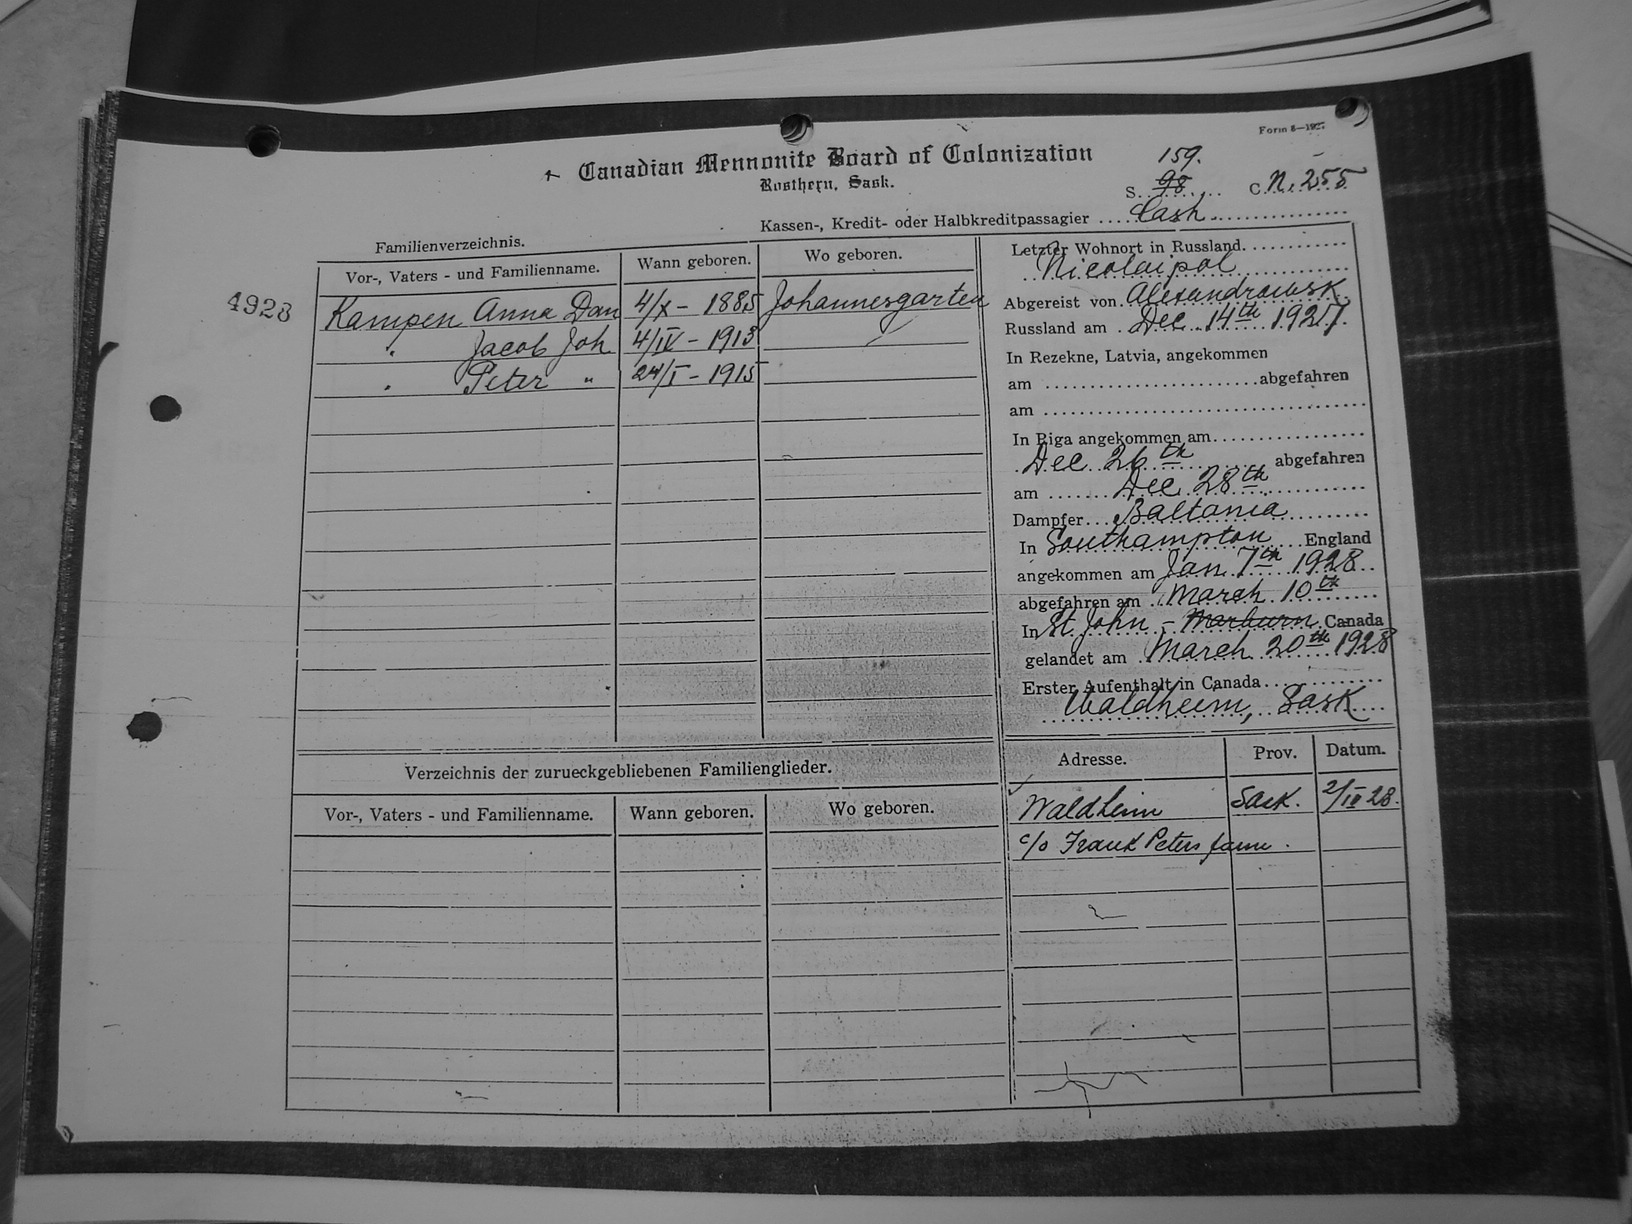 Form 8—1927
Canadian Mennonite Board of Colonization
Rosthern, Sask.
159.
S. 98 C. N. 255
Kassen-, Kredit- oder Halbkreditpassagier Cash
Familienverzeichnis.
Vor-, Vaters - und Familienname. Wann geboren. Wo geboren.
4928 Kampen Anna Dan 4/X - 1885 Johannesgarten
" Jacob Joh 4/IV - 1913
" Peter " 24/I - 1915
Letzter Wohnort in Russland
Nicolaipol
Abgereist von Alexandrowsk
Russland am Dec. 14th 1927.
In Rezekne, Latvia, angekommen
am abgefahren
am
In Riga angekommen am
Dec 26th abgefahren
am Dec 28th
Dampfer Baltania
In Southampton England
angekommen am Jan 7th 1928
abgefahren am March 10th
In St John - Marburn Canada
gelandet am March 20th 1928
Erster Aufenthalt in Canada
Waldheim, Sask
Verzeichnis der zurueckgebliebenen Familienglieder.
Vor-, Vaters - und Familienname. Wann geboren. Wo geboren.
Adresse. Prov. Datum.
Waldheim Sask. 2/III 28.
c/o Frank Peters farm.